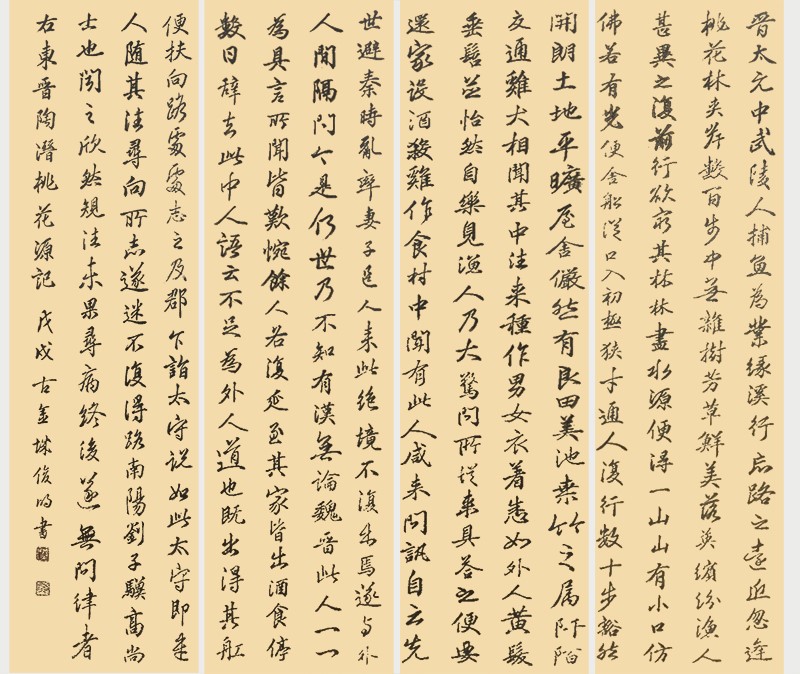 晉太元中武陵人捕魚為業緣溪行忘路之遠近忽逢
桃花林夾岸數百步中無雜樹芳草鮮美落英繽紛漁人
甚異之復前行欲窮其林林盡水源便得一山山有小口仿
佛若有光便舍船從口入初極狹才通人復行數十步豁然
開朗土地平曠屋舍儼然有良田美池桑竹之属阡陌
交通雞犬相聞其中往来種作男女衣著悉如外人黃髮
垂髫並怡然自樂見漁人乃大驚问所從来具答之便要
還家设酒殺雞作食村中聞有此人咸来问訊自云先
世避秦時亂率妻子邑人来此絕境不復出焉遂与外
人間隔问今是何世乃不知有漢無論魏晉此人一一
為具言所聞皆歎惋餘人各復延至其家皆出酒食停
數日辭去此中人語云不足為外人道也既出得其舡
便扶向路處處志之及郡下詣太守说如此太守即遣
人随其往尋向所志遂迷不復得路南陽劉子驥高尚
士也聞之欣然規往未果尋病終後遂無问津者
右東晉陶潛桃花源記 戊戌 古金城俊 書